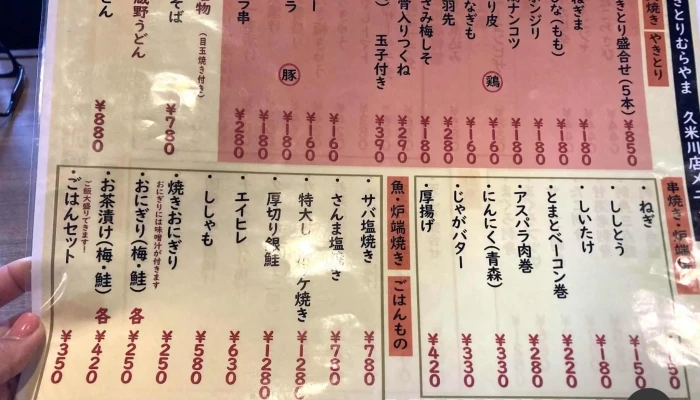 やきとりむらやま 久米川店メニ
焼き やきとり
きとり盛合せ(5本) ¥850
ねぎま ¥180
な(もも) ¥180
ンジリ ¥180
ナンコツ ¥180
り皮 ¥160
なぎも ¥160
羽先 ¥280
さみ梅しそ ¥180
骨入りつくね ¥290
玉子付き ¥390
鶏
¥160
¥160
¥180
¥180
ラ串 ¥280
豚
物
(目玉焼き付き)
そば ¥780
蔵野うどん
どん ¥880
串焼き・炉端
・ねぎ ¥150
・ししとう ¥150
・しいたけ ¥180
・とまとベーコン巻 ¥220
・アスパラ肉巻 ¥280
・にんにく(青森) ¥330
・じゃがバター ¥330
・厚揚げ ¥420
魚・炉端焼き
ごはんもの
・サバ塩焼き ¥780
・さんま塩焼き ¥730
・特大し ケ焼き ¥1280
・厚切り銀鮭 ¥1280
・エイヒレ ¥630
・ししゃも ¥580
・焼きおにぎり ¥250
おにぎりには味噌汁が付きます
・おにぎり(梅・鮭) 各¥250
・お茶漬け(梅・鮭) 各¥420
ご飯大盛りできます!
・ごはんセット ¥350